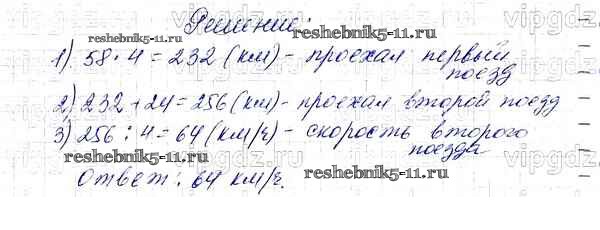 Решение:
reshebnik5-11.ru
1) 58 · 4 = 232 (км) - проехал первый
поезд
2) 232 + 24 = 256 (км) - проехал второй поезд
3) 256 : 4 = 64 (км/ч) - скорость второго
поезда
reshebnik5-11.ru
Ответ: 64 км/ч.
reshebnik5-11.ru
vipgdz.ru